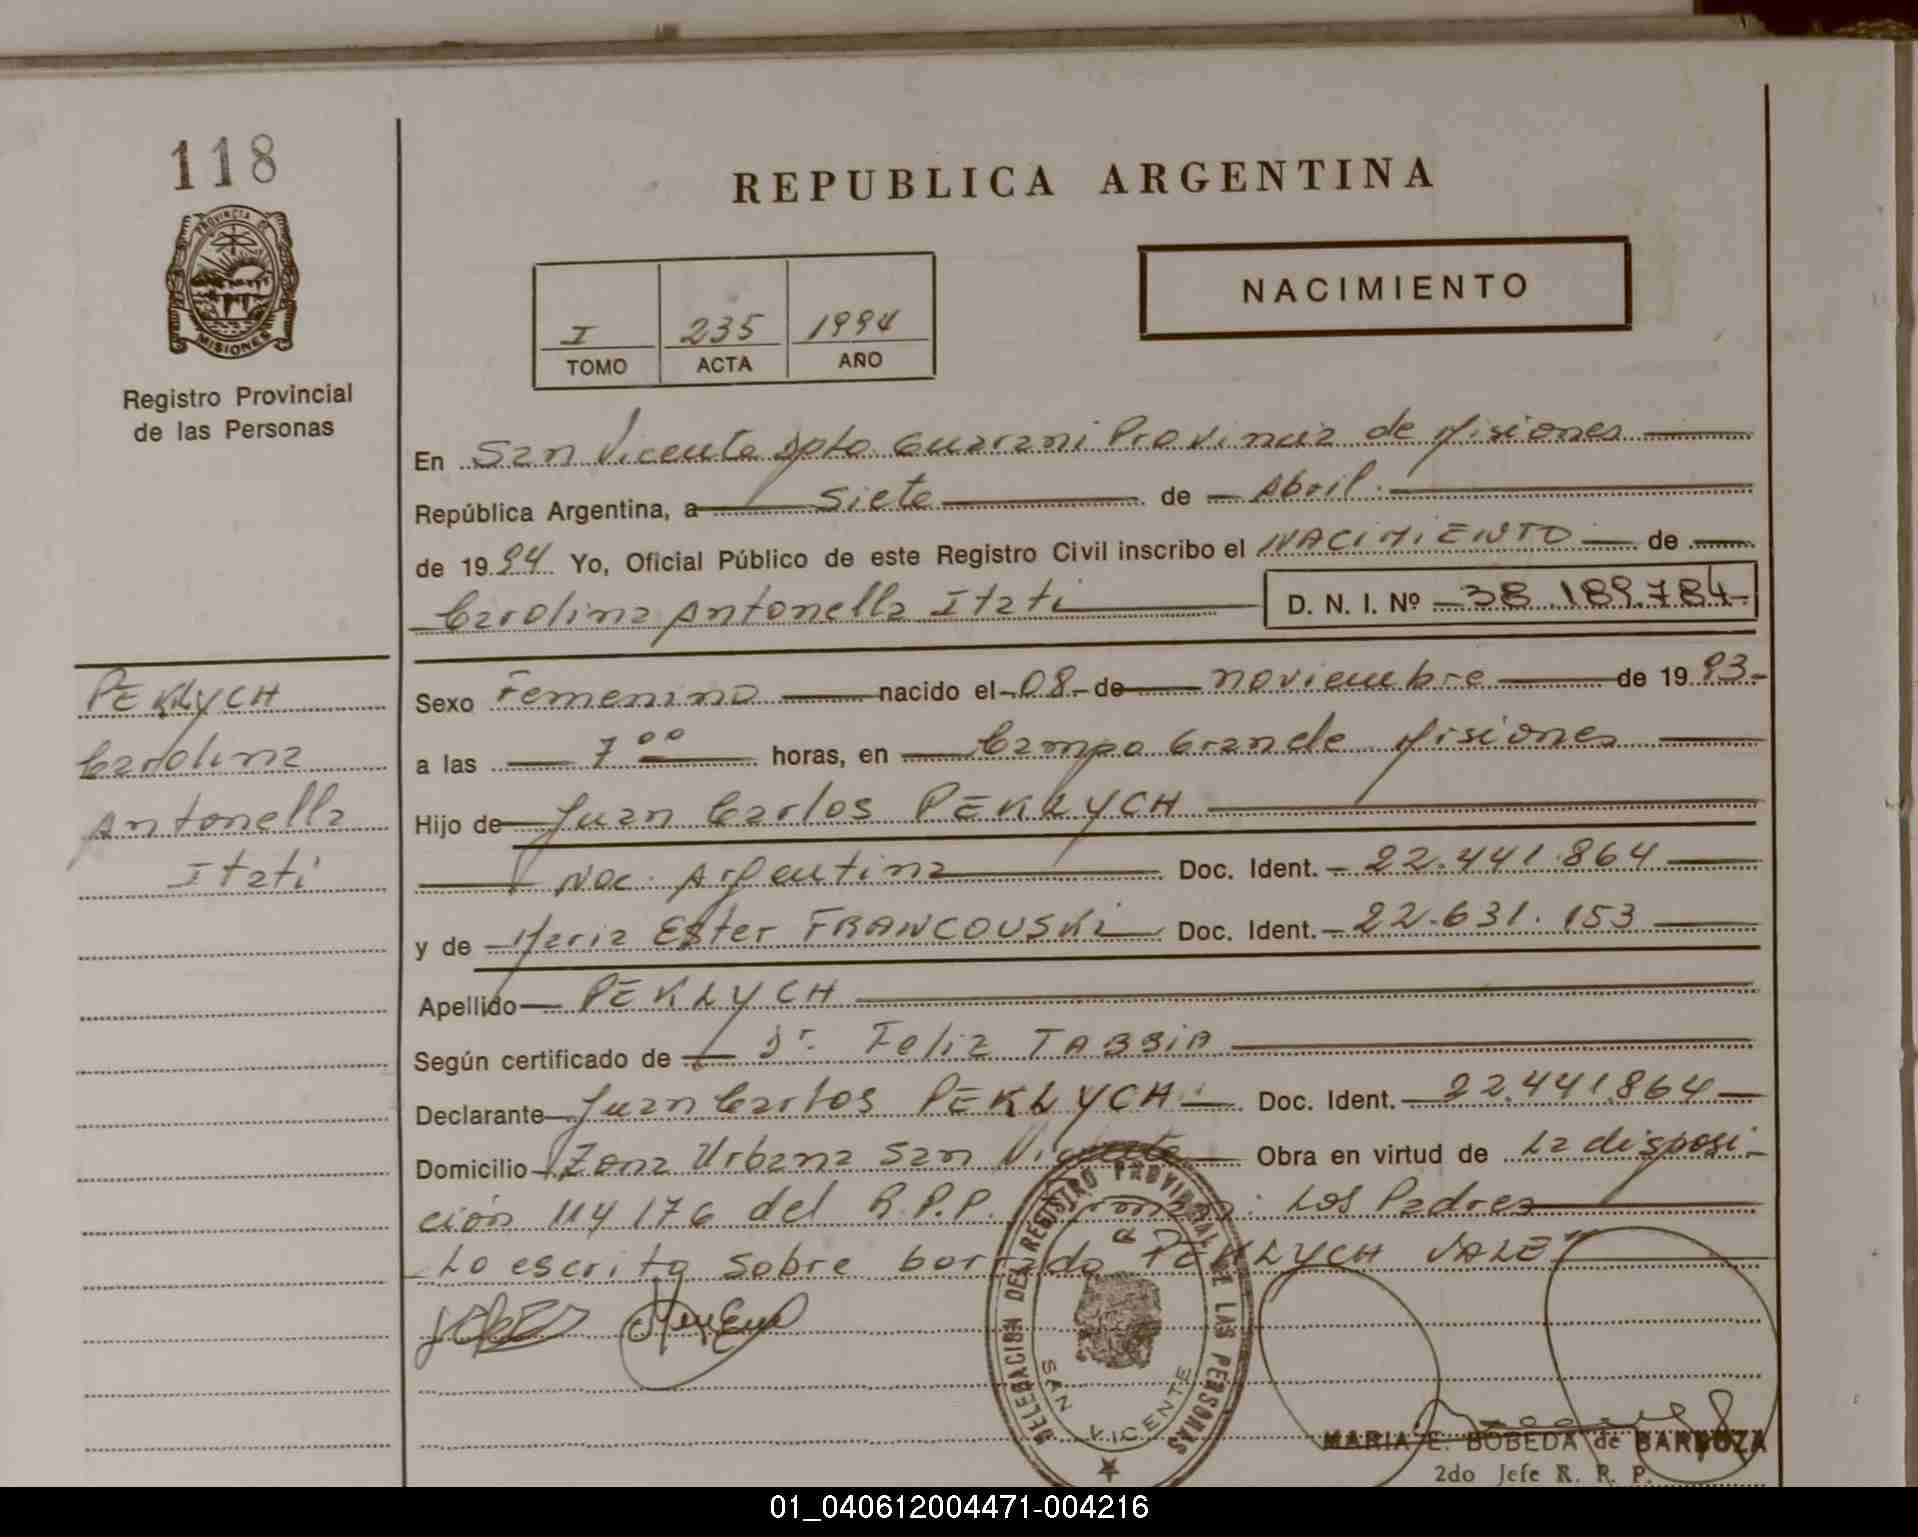 118
PROVINCIA DE
MISIONES
Registro Provincial
de las Personas
REPUBLICA ARGENTINA
NACIMIENTO
I 235 1994
TOMO ACTA AÑO
En San Vicente Dpto. Guarani Provincia de Misiones
República Argentina, a siete de Abril
de 1994 Yo, Oficial Público de este Registro Civil inscribo el NACIMIENTO de
Carolina Antonella Itati D. N. I. Nº 38.189.784
PEKLYCH
Carolina
Antonella
Itati
Sexo Femenino nacido el 08 de noviembre de 1993
a las 7 00 horas, en Campo Grande Misiones
Hijo de Juan Carlos PEKLYCH
Nac. Argentina Doc. Ident. 22.441.864
y de Maria Ester FRANCOUSKI Doc. Ident. 22.631.153
Apellido PEKLYCH
Según certificado de Dr. Feliz TABBIA
Declarante Juan Carlos PEKLYCH Doc. Ident. 22.441.864
Domicilio Zona Urbana San Vicente Obra en virtud de La disposi-
ción 114/76 del R.P.P. Los Padres
Lo escrito sobre borrado PEKLYCH VALE"
DELEGACION DEL REGISTRO PROVINCIAL DE LAS PERSONAS
SAN VICENTE
MARIA E. BOBEDA de BARBOZA
2do Jefe R. R. P.
01_040612004471-004216